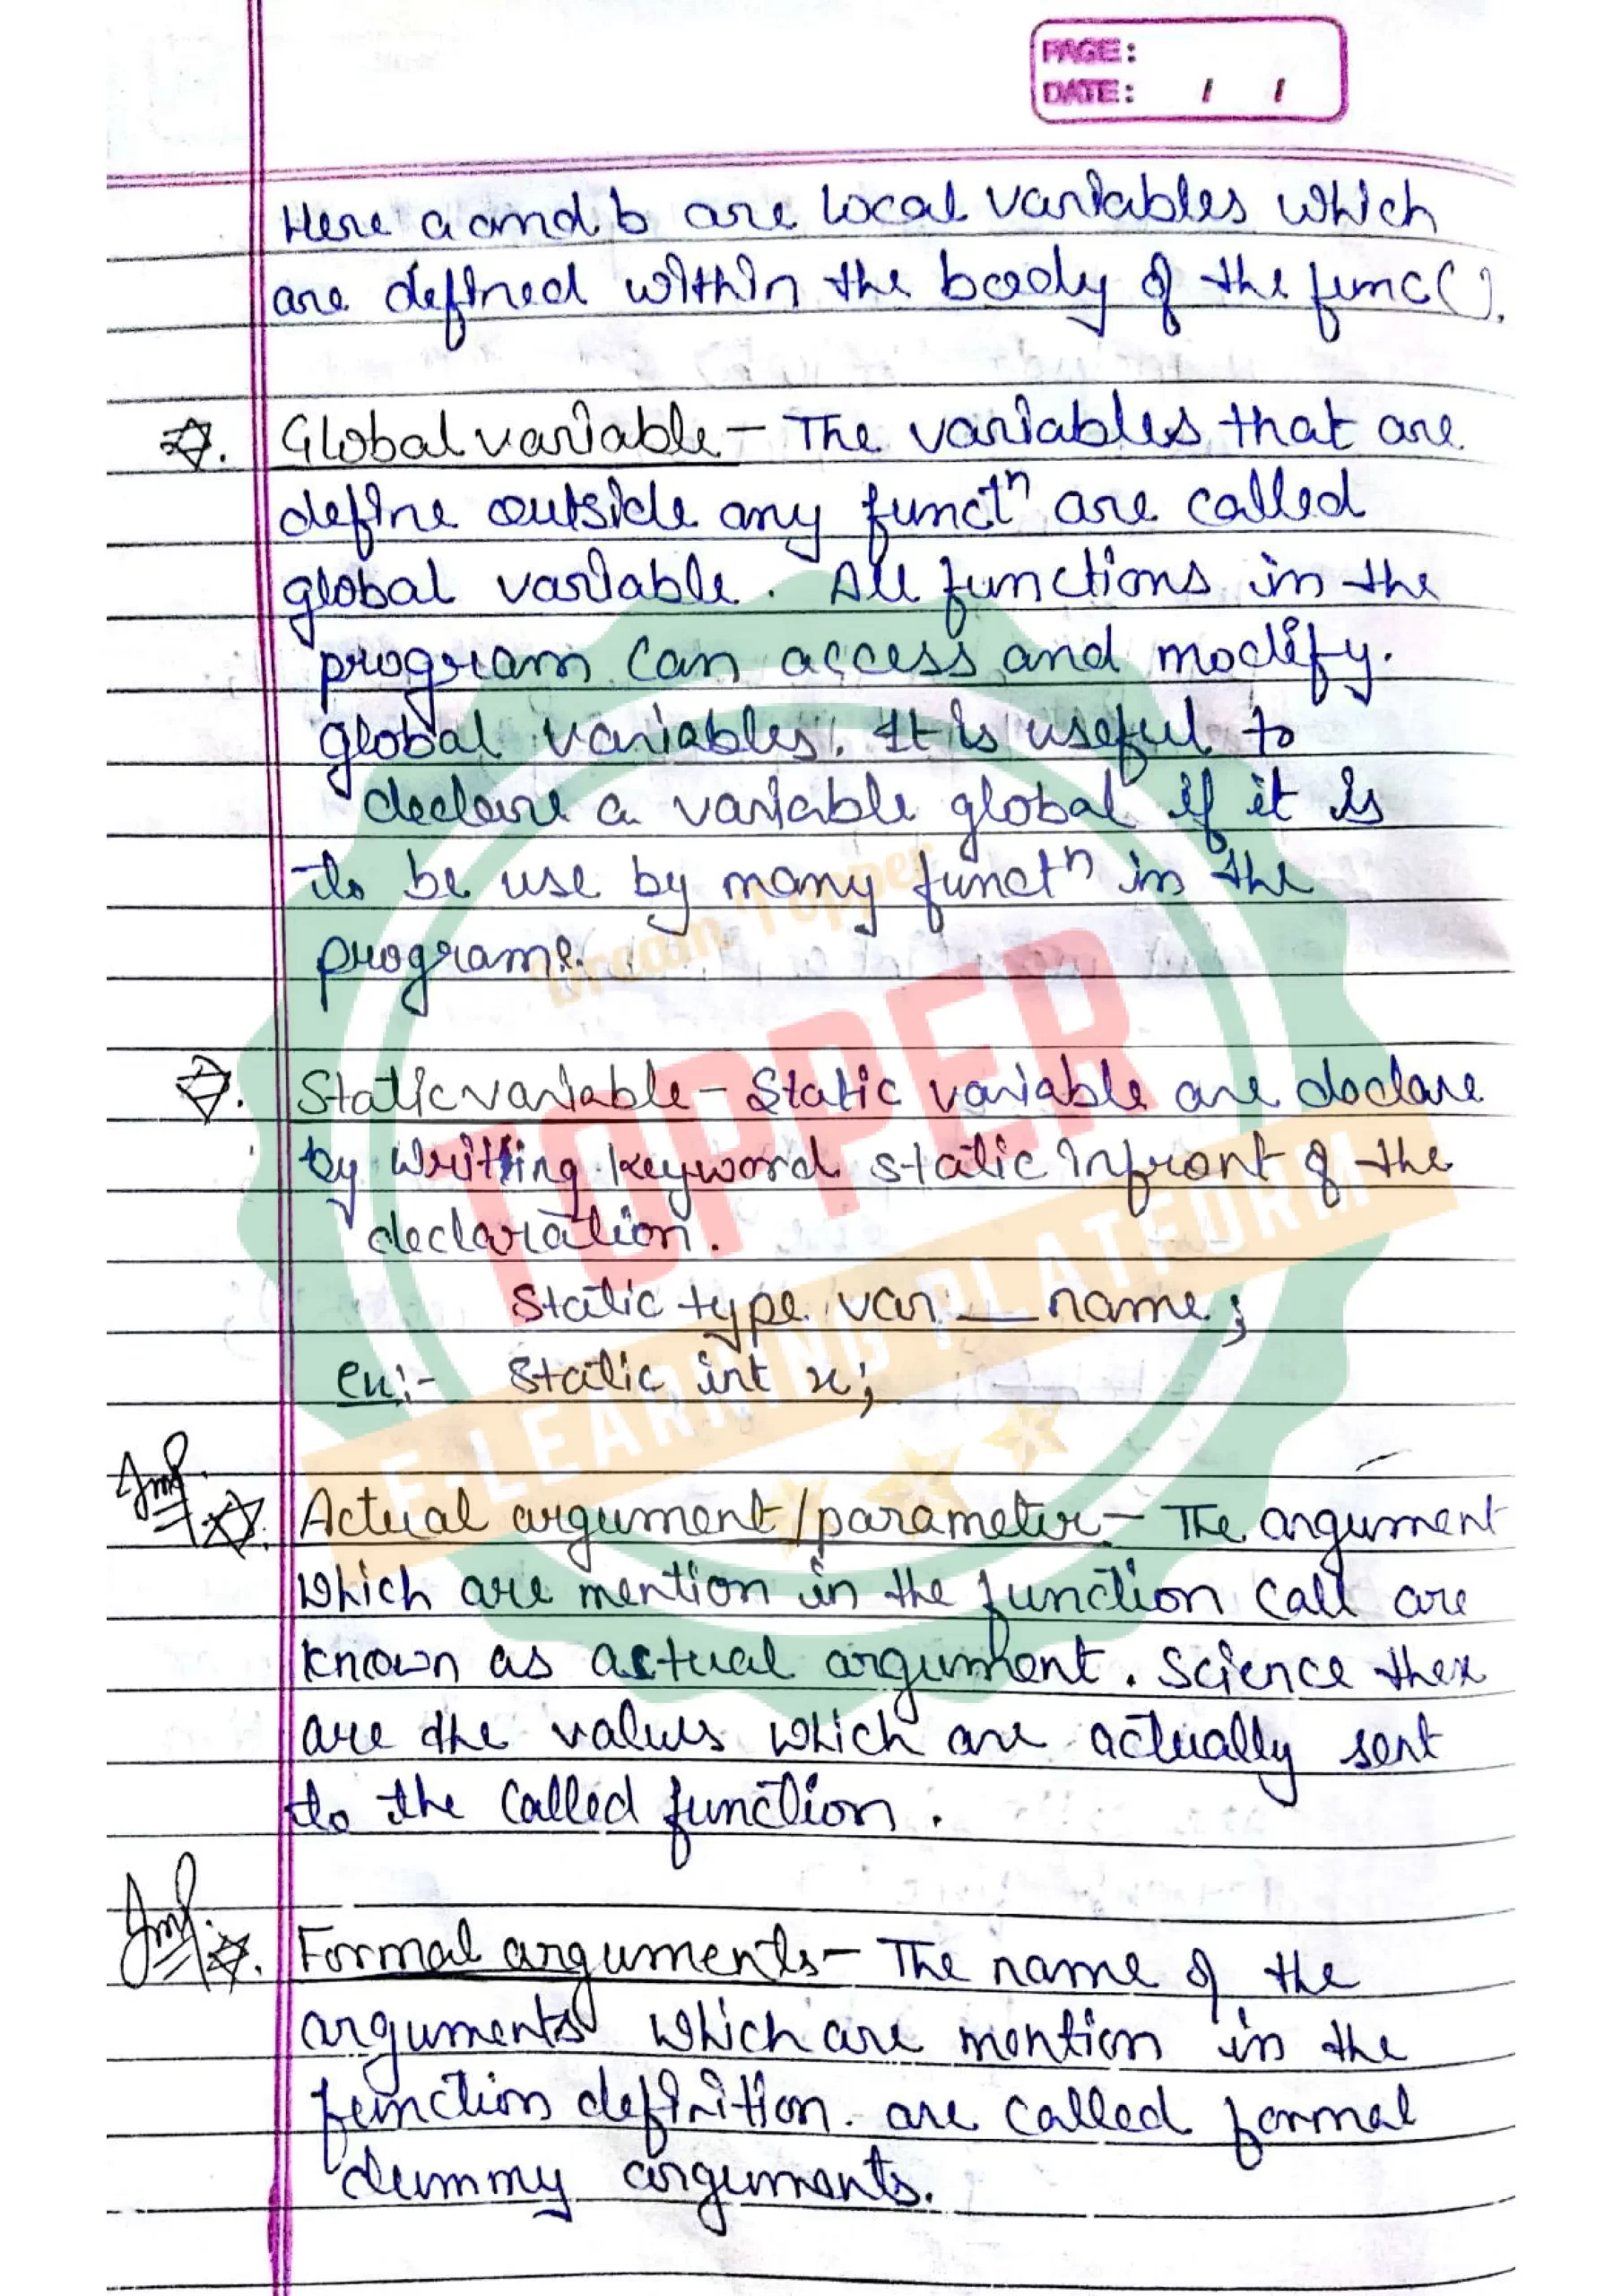 PAGE:
DATE: / /
Here a and b are local variables which
are defined within the boody of the func().
Global variable - The variables that are
define outside any functⁿ are called
global variable. All functions in the
program can access and modify.
global variables. It is useful to
declare a variable global if it is
to be use by many functⁿ in the
programe.
Dream Topper
TOPPER
E-LEARNING PLATFORM
Static variable - Static variable are declare
by writting keyword static infront of the
declaration.
Static type var_name;
ex:- Static int x;
Imp. Actual argument/parameter - The argument
which are mention in the function call are
known as actual argument. Science thex
are the values which are actually sent
to the called function.
Imp. Formal arguments - The name of the
arguments which are mention in the
function definition. are called formal
dummy arguments.